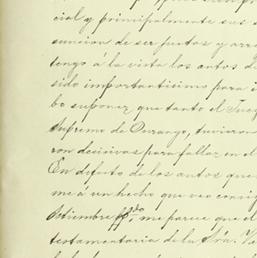 cial y principalmente sus
suncion de ser justos y arre
tengo á la vista los autos d
sido importantisimo para
be suponer, que tanto el Juzg
Supremo de Durango, tuvieron
ron decisivas para fallar en el
En defecto de los autos que
me á un hecho que veo consig
Setiembre ppdo, me parece que el
testamentaria de la Sra. Ve